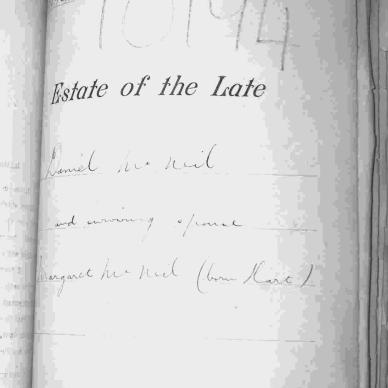 10194
Estate of the Late
Daniel Mc Neil
and surviving spouse
Margaret Mc Neil (born Hart)